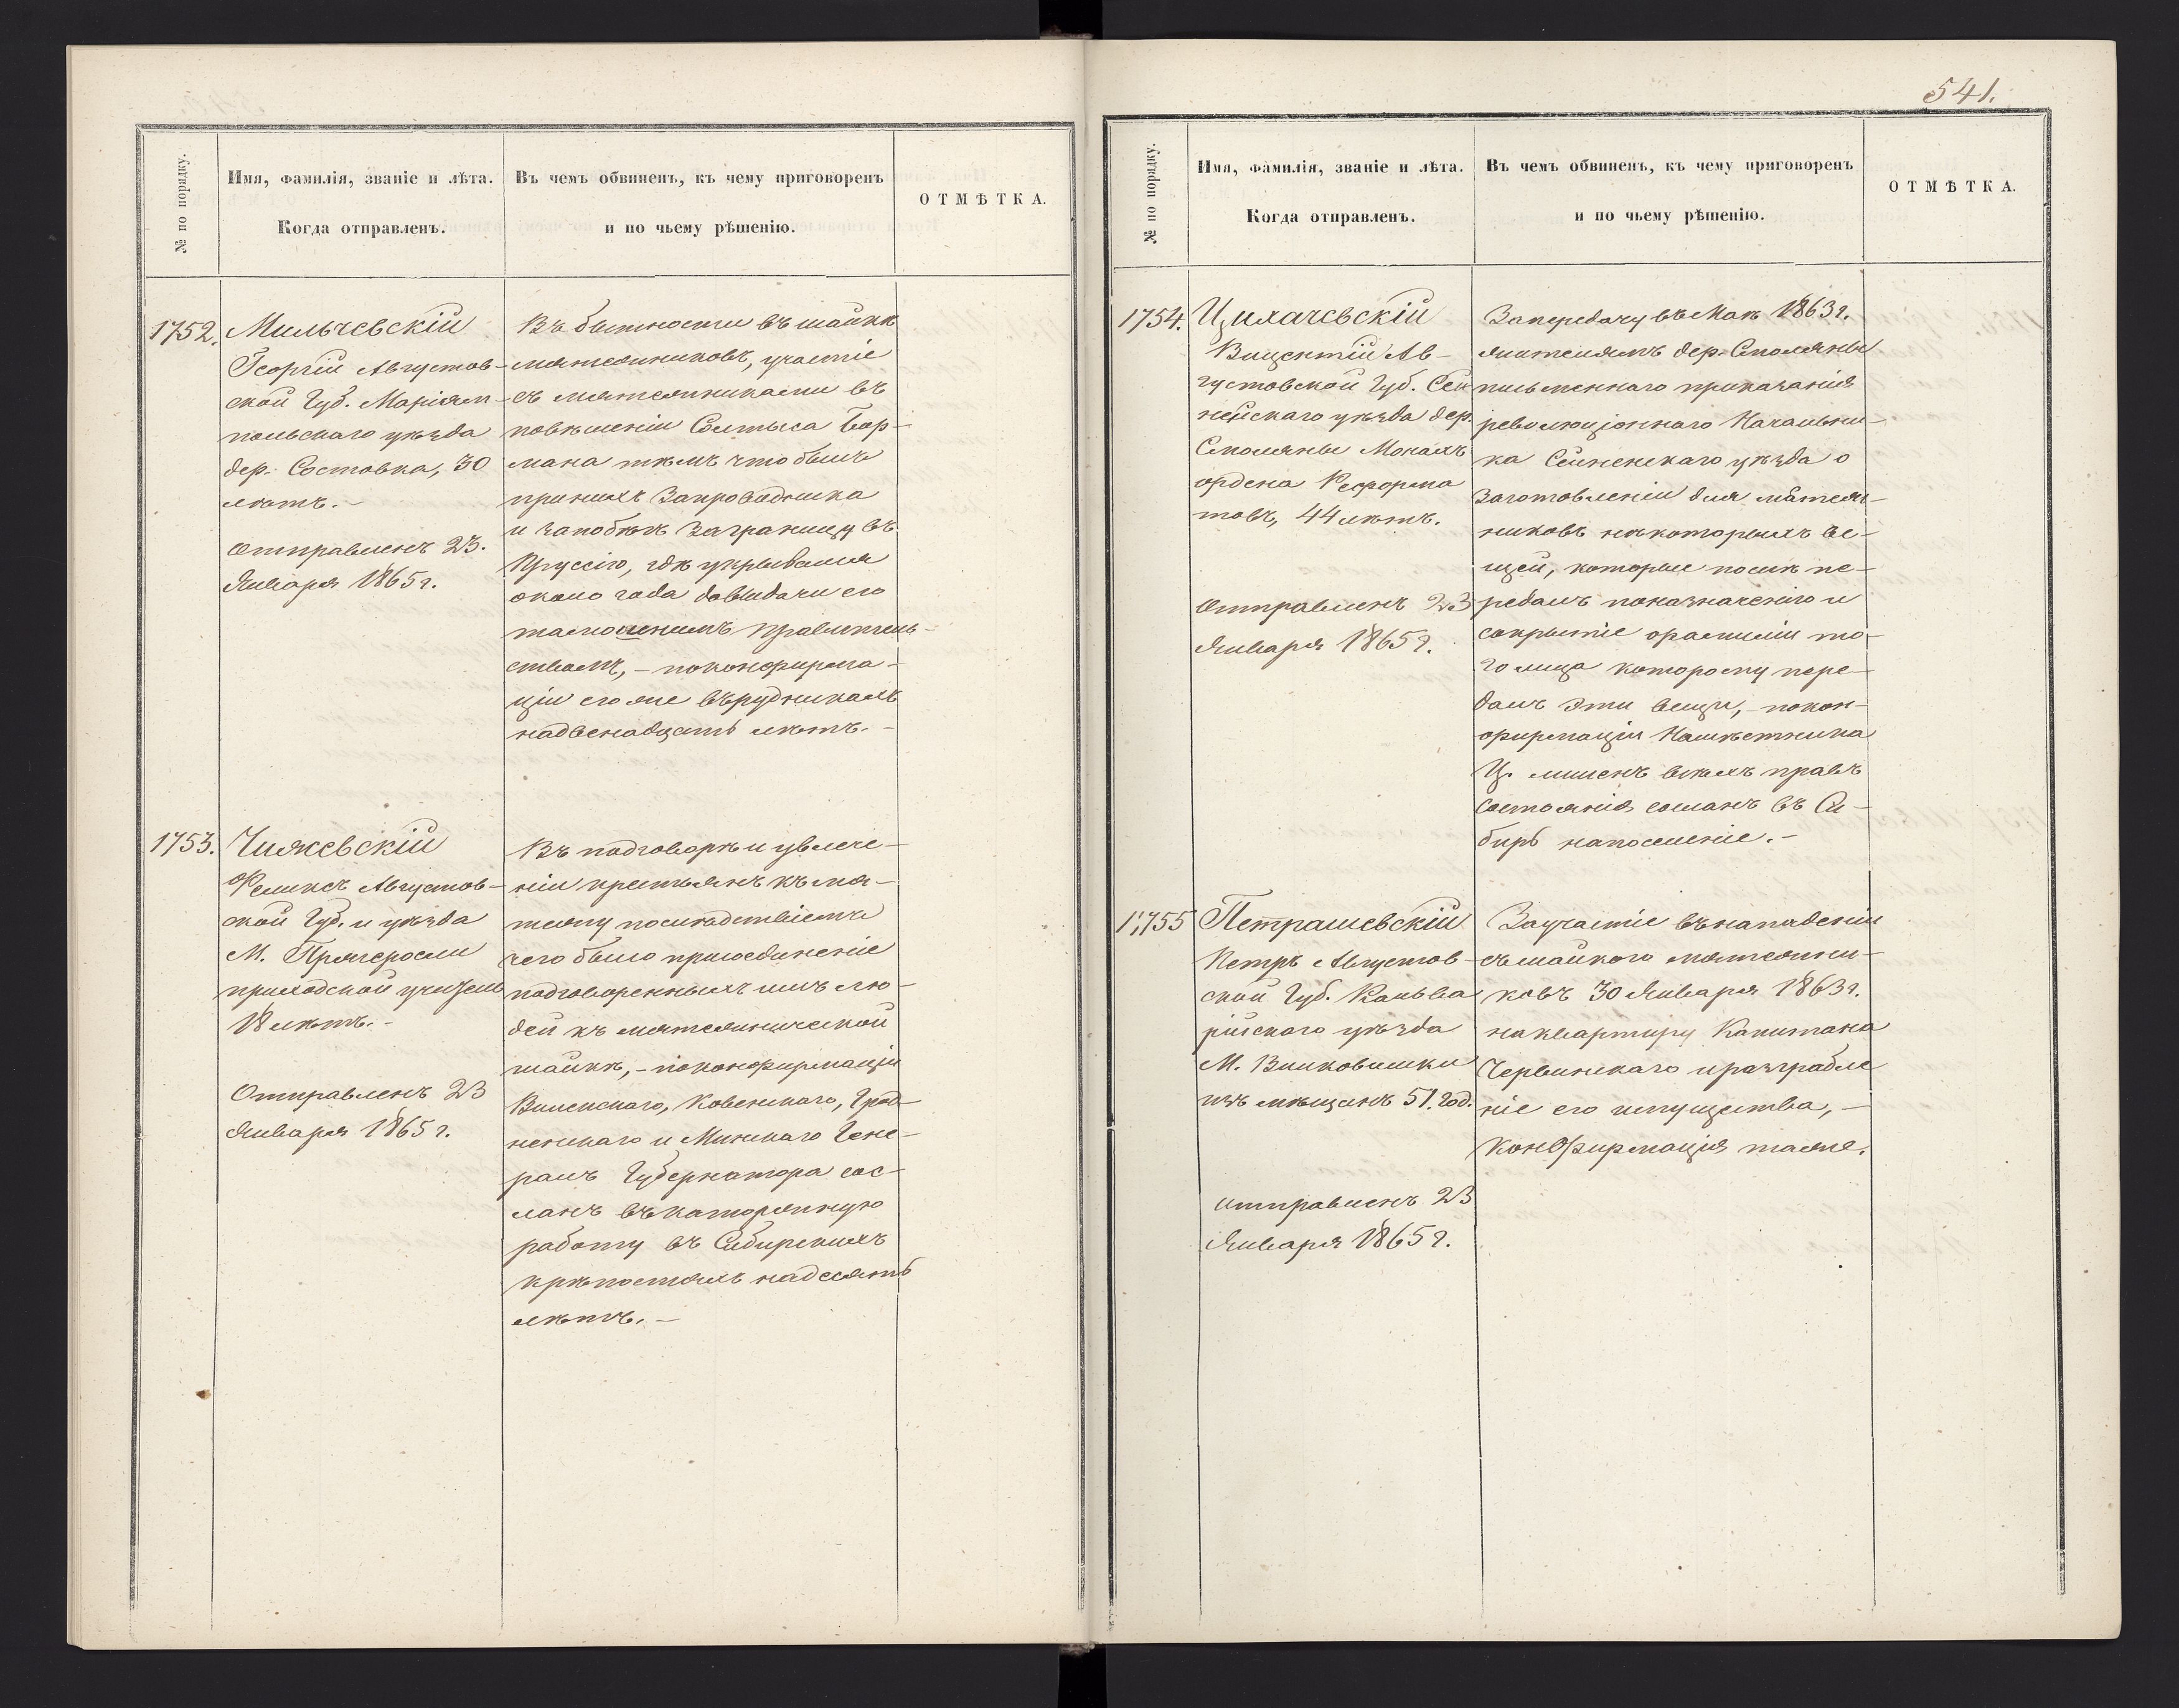 541.
№ по порядку.
Имя, фамилія, званіе и лѣта.
Когда отправленъ.
Въ чемъ обвиненъ, къ чему приговоренъ
и по чьему рѣшенію.
ОТМѢТКА.
1752.
Мильчевскій
Георгій Августов-
ской Губ. Маріям-
польскаго уѣзда
дер. Состовка, 30
лѣтъ.-
Отправленъ 23.
Января 1865 г.
Въ бытности въ шайкѣ
мятежниковъ, участіе
съ мятежниками въ
повѣшеніи Солтыса Бор-
мана тѣмъ что былъ
при нихъ за проводника
и за побѣгъ заграницу въ
Пруссію, гдѣ укрывался
около года до выдачи его
тамошнимъ правитель-
ствомъ, - по конфирма-
ціи его же въ рудникахъ
на двенадцать лѣтъ.-
1753.
Чижевскій
Феликсъ Августов-
ской Губ. и уѣзда
М. Прягеросли
приходской учитель
18 лѣтъ.-
Отправленъ 23
Января 1865 г.
Въ подговорѣ и увлече-
ніи крестьянъ къ мя-
тежу послѣдствіемъ
чего было присоединеніе
подговоренныхъ имъ лю-
дей къ мятежнической
шайкѣ, - по конфирмаціи
Виленскаго, Ковенскаго, Грод-
ненскаго и Минскаго Гене-
ралъ Губернатора сос-
ланъ въ каторжную
работу въ Сибирскихъ
крѣпостяхъ на десять
лѣтъ.-
№ по порядку.
Имя, фамилія, званіе и лѣта.
Когда отправленъ.
Въ чемъ обвиненъ, къ чему приговоренъ
и по чьему рѣшенію.
ОТМѢТКА.
1754.
Цихачевскій
Вицентій Ав-
густовской Губ. Сей
нейскаго уѣзда дер.
Смоляны Монахъ
ордена Реформа
товъ, 44 лѣтъ.
Отправленъ 23
Января 1865 г.
За передачу въ Маѣ 1863 г.
жителямъ дер. Смоляны
письменнаго приказанія
революціоннаго Начальни-
ка Сейненскаго уѣзда о
заготовленіи для мятеж-
никовъ нѣкоторыхъ ве-
щей, которые послѣ пе-
редалъ по назначенію и
сокрытіе фамиліи то-
го лица которому пере-
далъ эти вещи, - по кон-
фирмаціи Намѣстника
Ц. лишенъ всѣхъ правъ
состоянія сосланъ въ Си-
бирь на поселеніе.-
1,755
Петрашевскій
Петръ Августов-
ской Губ. Кальва
рійскаго уѣзда
М. Вилковишки
изъ мѣщанъ 51. год.
отправленъ 23
Января 1865 г.
За участіе въ нападеніи
съ шайкою мятежни-
ковъ 30 Января 1863 г.
на квартиру Капитана
Червинскаго и разграбле
ніе его имущества, -
Конфирмація таже.